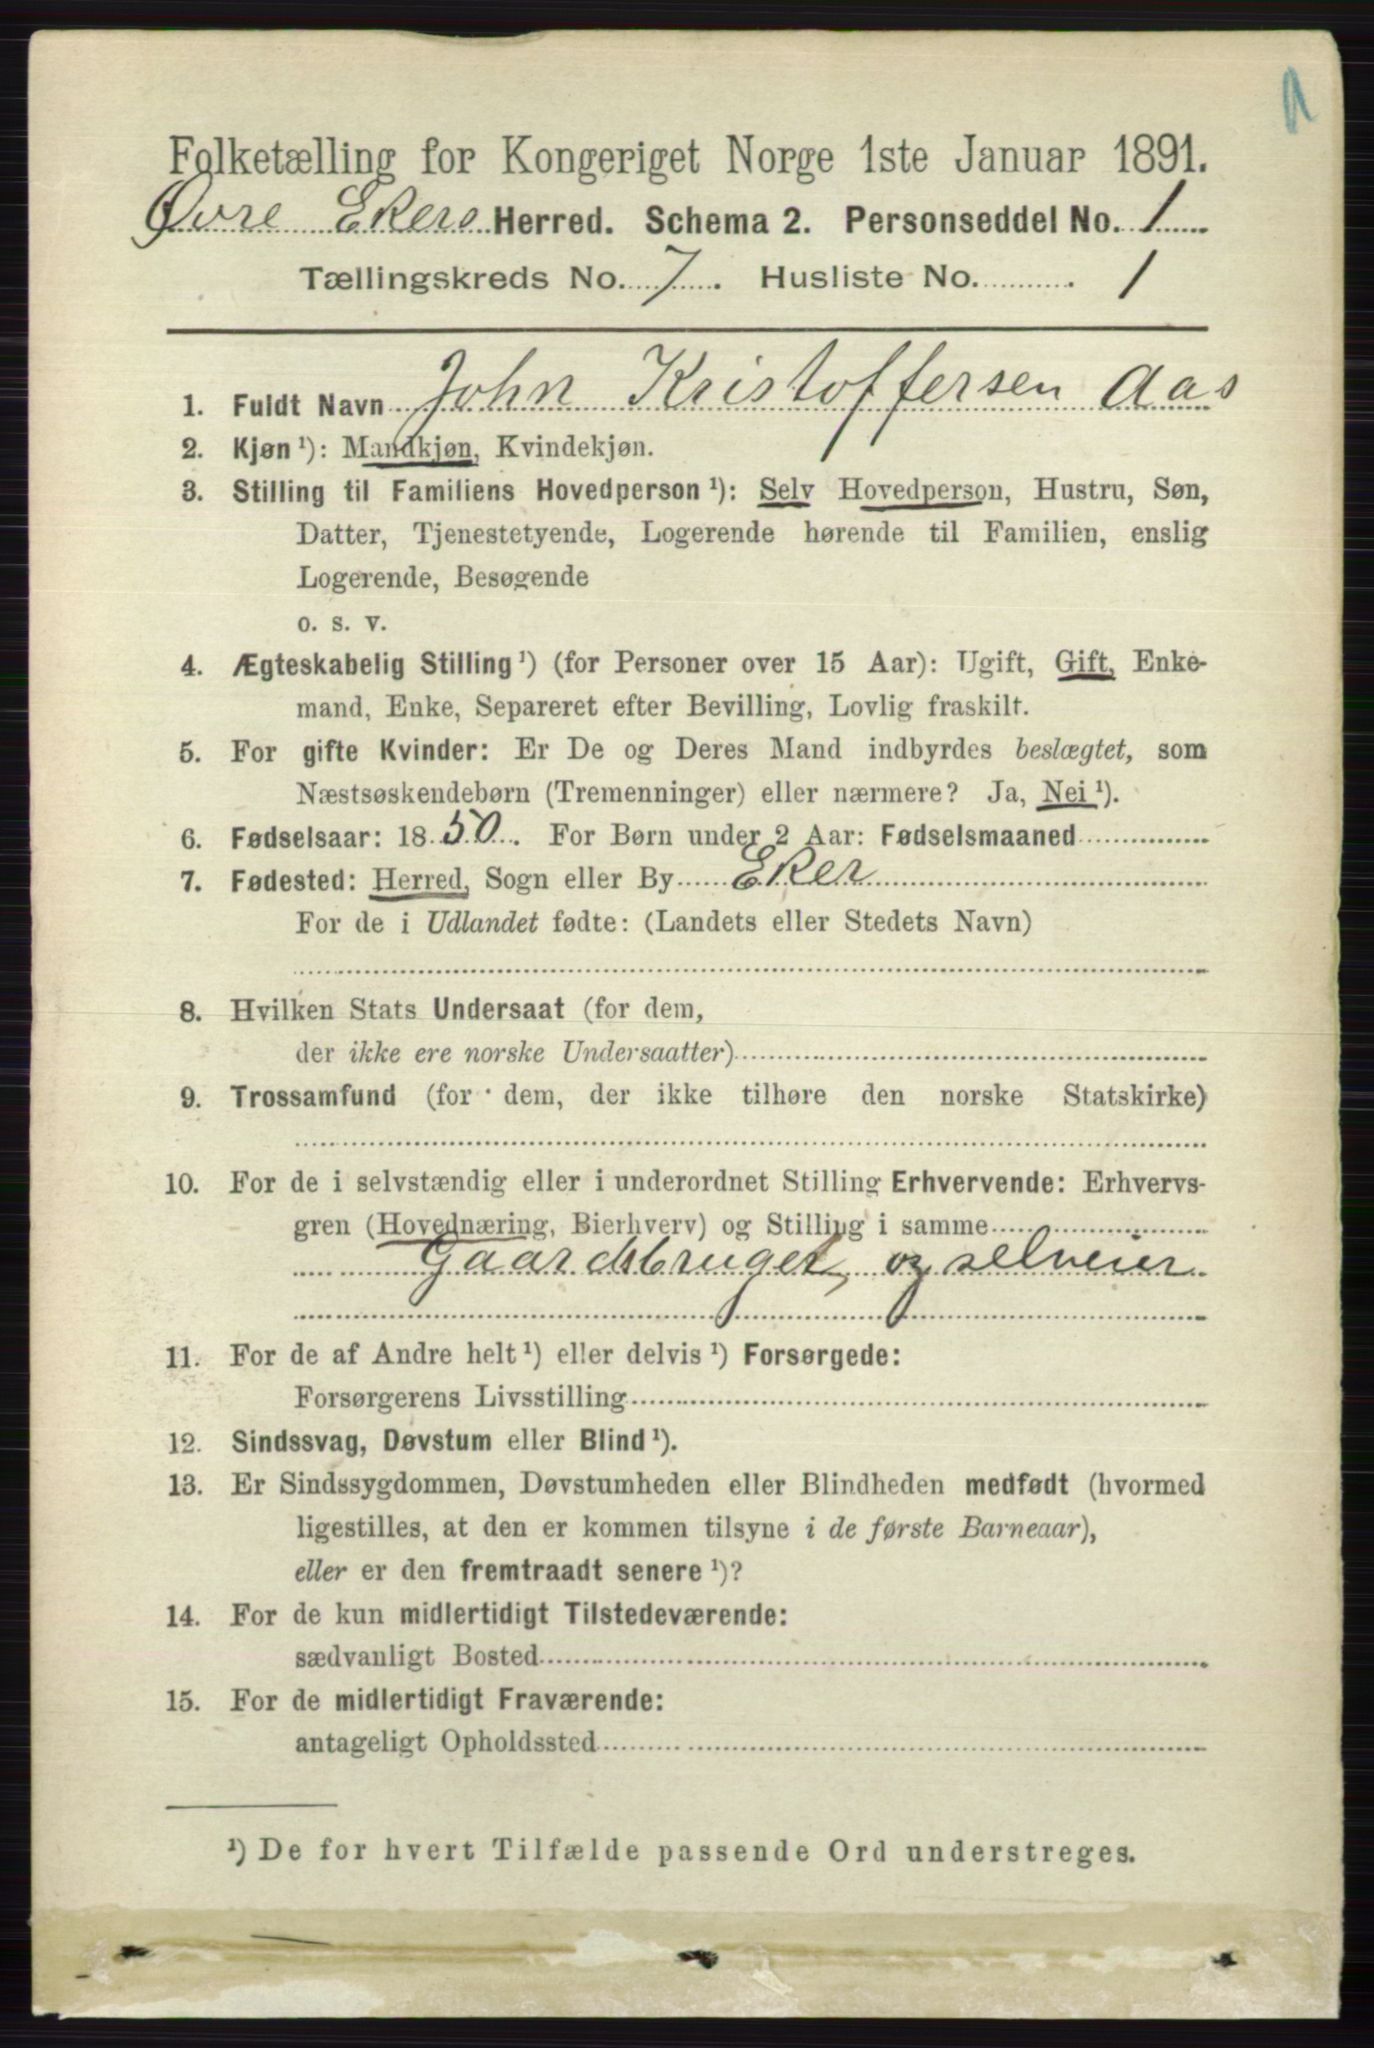 Folketælling for Kongeriget Norge 1ste Januar 1891.
Øvre Ekers Herred. Schema 2. Personseddel No. 1
Tællingskreds No. 7. Husliste No. 1
1. Fuldt Navn John Kristoffersen Aas
2. Kjøn ¹): Mandkjøn, Kvindekjøn.
3. Stilling til Familiens Hovedperson ¹): Selv Hovedperson, Hustru, Søn,
Datter, Tjenestetyende, Logerende hørende til Familien, enslig
Logerende, Besøgende
o. s. v.
4. Ægteskabelig Stilling ¹) (for Personer over 15 Aar): Ugift, Gift, Enke-
mand, Enke, Separeret efter Bevilling, Lovlig fraskilt.
5. For gifte Kvinder: Er De og Deres Mand indbyrdes beslægtet, som
Næstsøskendebørn (Tremenninger) eller nærmere? Ja, Nei ¹).
6. Fødselsaar: 1850. For Børn under 2 Aar: Fødselsmaaned
7. Fødested: Herred, Sogn eller By Eker
For de i Udlandet fødte: (Landets eller Stedets Navn)
8. Hvilken Stats Undersaat (for dem,
der ikke ere norske Undersaatter)
9. Trossamfund (for dem, der ikke tilhøre den norske Statskirke)
10. For de i selvstændig eller i underordnet Stilling Erhvervende: Erhvervs-
gren (Hovednæring, Bierhverv) og Stilling i samme
Gaardsbruger, og selveier
11. For de af Andre helt ¹) eller delvis ¹) Forsørgede:
Forsørgerens Livsstilling
12. Sindssvag, Døvstum eller Blind ¹).
13. Er Sindssygdommen, Døvstumheden eller Blindheden medfødt (hvormed
ligestilles, at den er kommen tilsyne i de første Barneaar),
eller er den fremtraadt senere ¹)?
14. For de kun midlertidigt Tilstedeværende:
sædvanligt Bosted
15. For de midlertidigt Fraværende:
antageligt Opholdssted
¹) De for hvert Tilfælde passende Ord understreges.